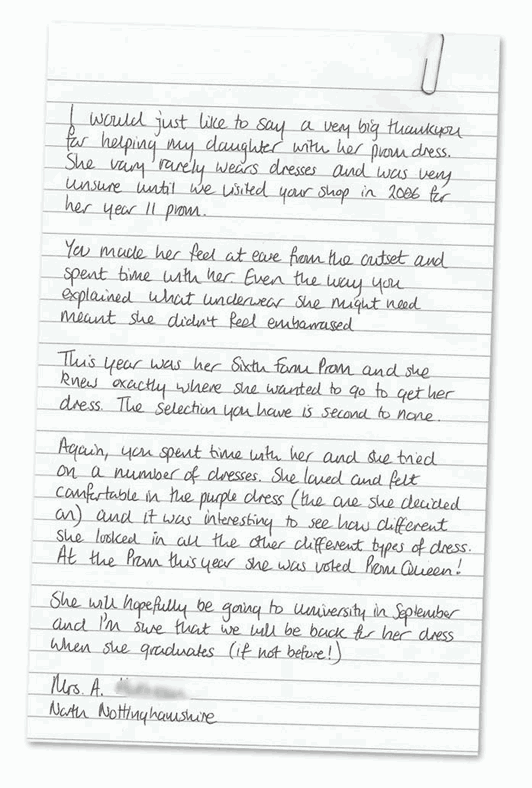 I would just like to say a very big thankyou
for helping my daughter with her prom dress.
She very rarely wears dresses and was very
unsure until we visited your shop in 2006 for
her year 11 prom.
You made her feel at ease from the outset and
spent time with her. Even the way you
explained what underwear she might need
meant she didn't feel embarrased
This year was her Sixth Form Prom and she
knew exactly where she wanted to go to get her
dress. The selection you have is second to none.
Again, you spent time with her and she tried
on a number of dresses. She loved and felt
comfortable in the purple dress (the one she decided
on) and it was interesting to see how different
she looked in all the other different types of dress.
At the Prom this year she was voted Prom Queen!
She will hopefully be going to university in September
and I'm sure that we will be back for her dress
when she graduates (if not before!)
Mrs. A.
North Nottinghamshire